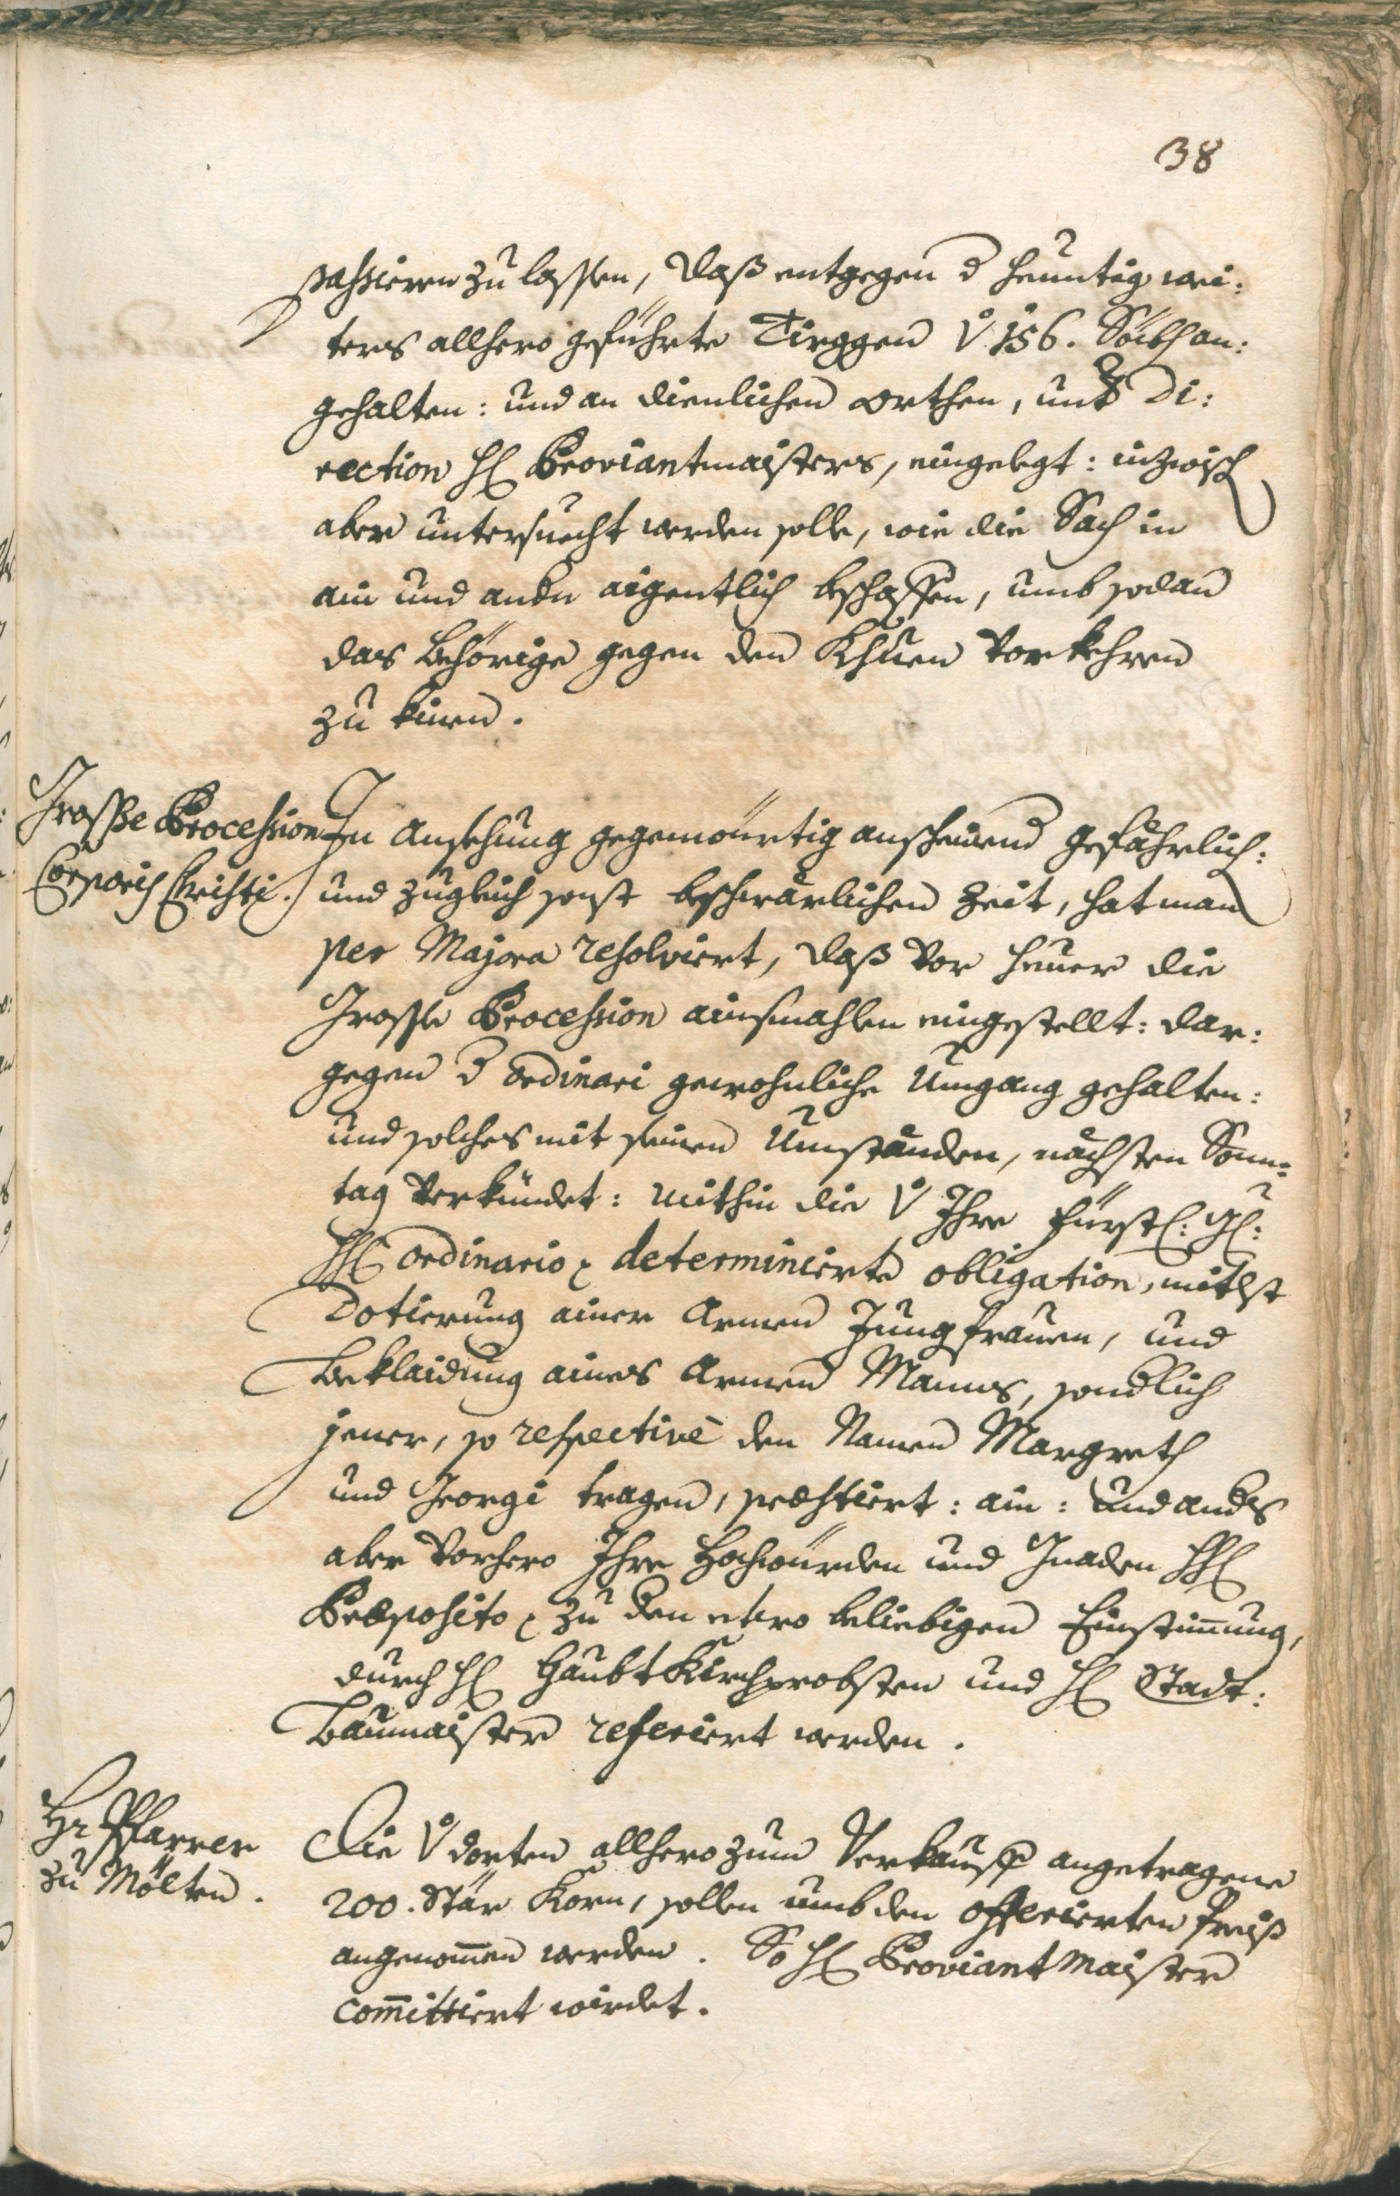 38
passieren zu lassen, daß entgegen d heuntig wei:
ters allhero geführte Türggen v. 156. Söckh an:
gehalten: und an dienlichen Orthen, und Di:
rection H. Proviantmaisters, eingelegt: inzwisch
aber untersuecht werden solle, wie die Sach in
ain und andn aigentlich beschaffen, umb sodan
das Behörige gegen den Khuen vorkehren
zu kinen.
Grosse Procession
Corporis Christi.
In Ansehung gegenwürtig anscheinend gefährlich:
und zugleich sonst beschwärlichen Zeit, hat man
per Majora resolviert, daß vor heuer die
Grosse Procession ainsmahlen eingestellt: dar:
gegen d ordinari gewohnliche Umgang gehalten:
und solches mit seinen Umständen, nächsten Sonn:
tag verkündet: mithin die v Ihre fürstl: Gl:
H. ordinario determinierte obligation, mitlst
Dotierung ainer Armen Jungfrauen, und
Beklaidung aines Armen Manns, sondlich
jener, so respectivè den Namen Margreth
und Georgi tragen, præstiert: ain: und andrs
aber vorhero Ihre Hochwürden und Gnaden H.
Præposito zu den etwo beliebigen Einstimmung,
durch H. Haubt Kirchprobsten und H. Stadt:
Baumaister referiert werden.
Hr Pfarrer
zu Mölten.
Die v dorten allhero zum Verkauff angetragene
200. Stär Korn, sollen umb den offerierten Preiß
angenommen werden. So H. Proviant Maister
committiert wirdet.